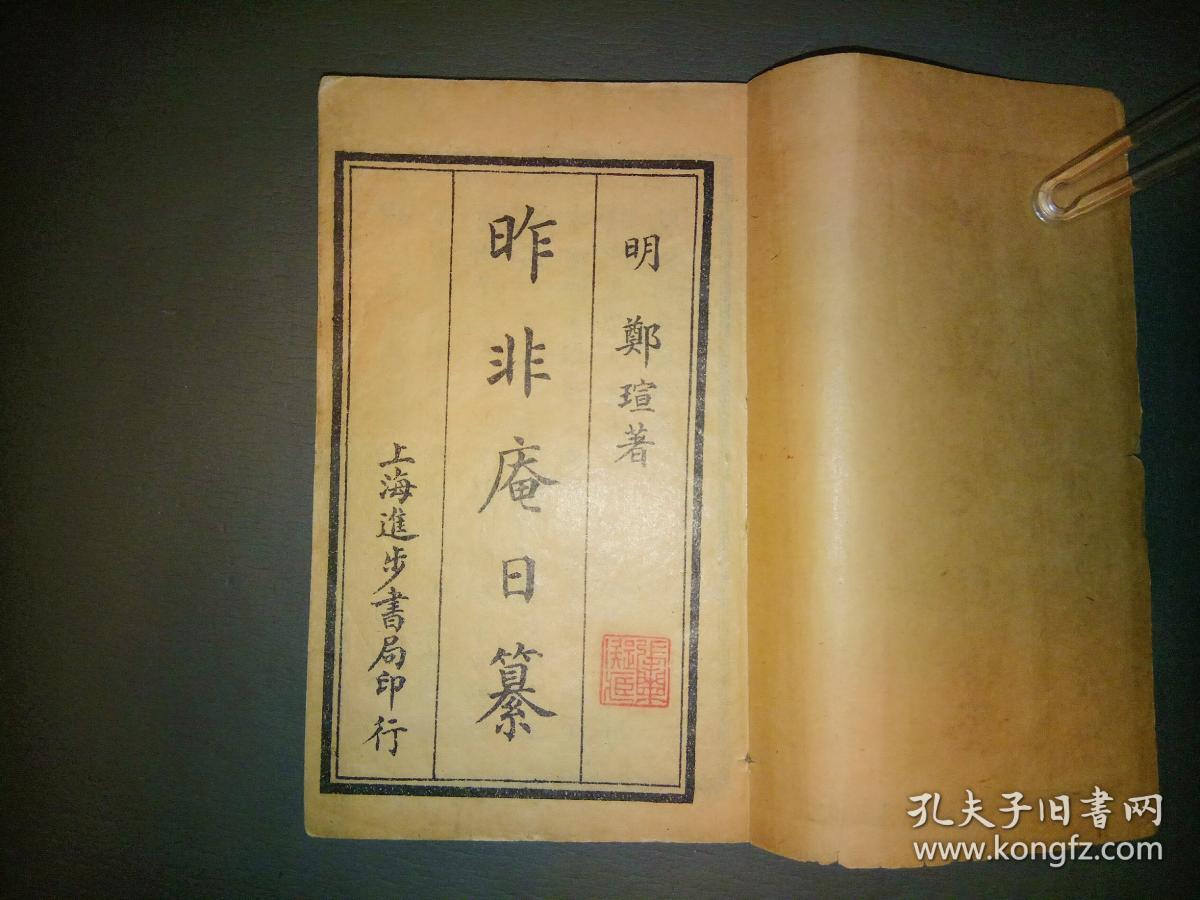 明 鄭瑄著
昨非庵日纂
上海進步書局印行
孔夫子旧书网
www.kongfz.com